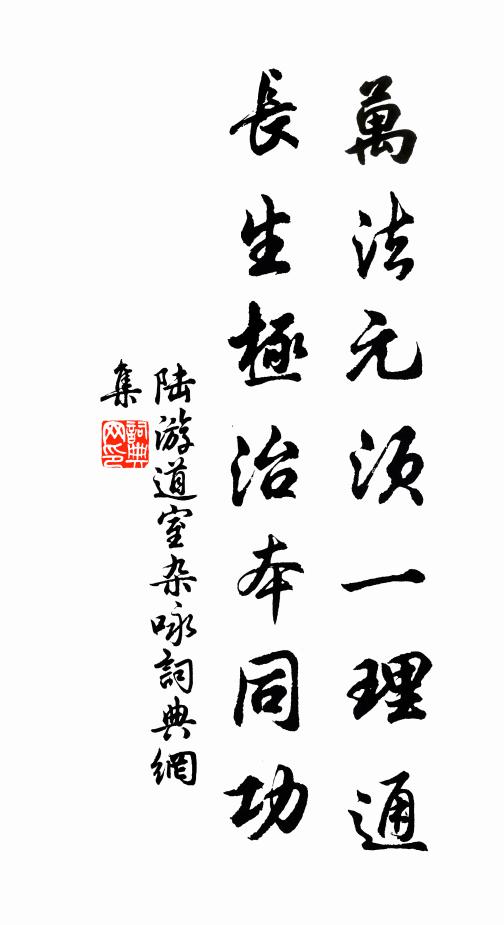 萬法元須一理通
長生極治本同功
陸游道室杂咏詞典網
集
詞典
网印